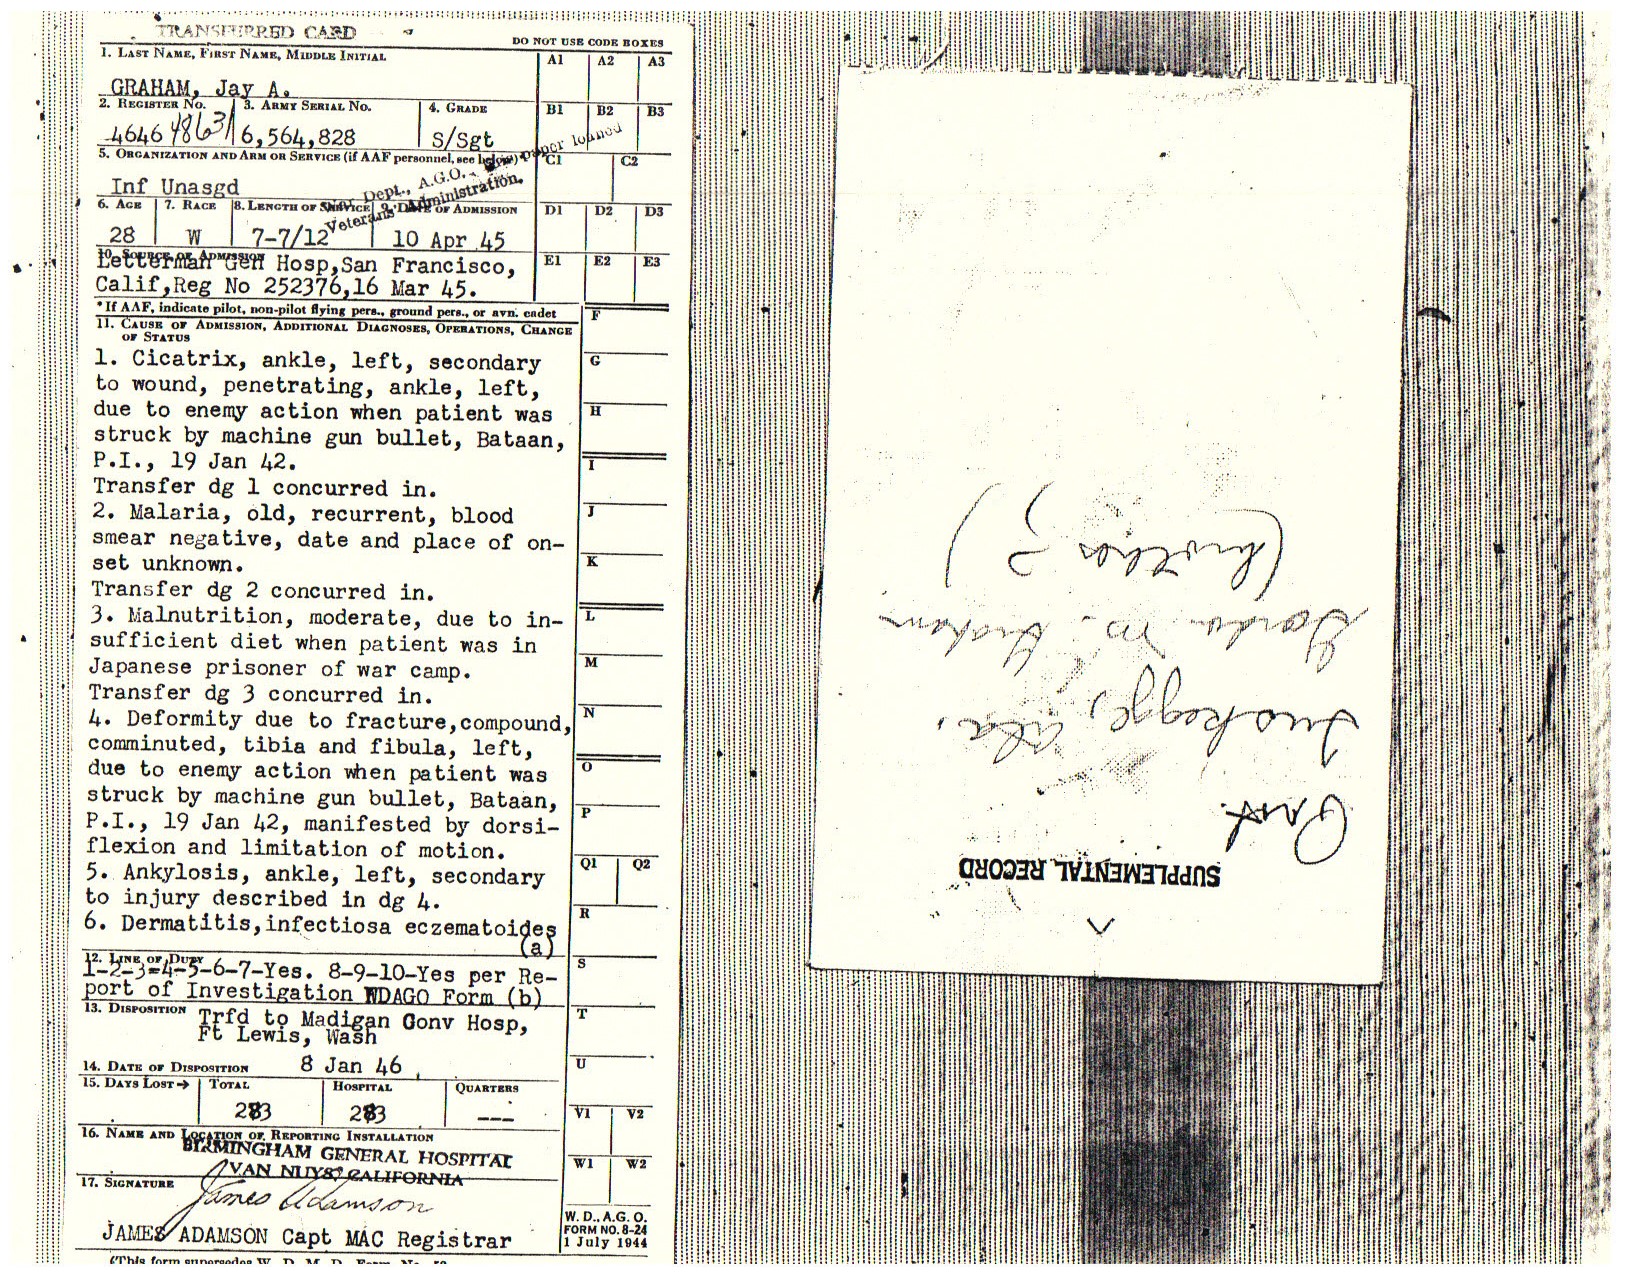 TRANSFERRED CARD
DO NOT USE CODE BOXES
1. LAST NAME, FIRST NAME, MIDDLE INITIAL
A1 A2 A3
GRAHAM, Jay A.
2. REGISTER NO. 3. ARMY SERIAL NO. 4. GRADE
B1 B2 B3
4646 48631 6,564,828 S/Sgt
5. ORGANIZATION AND ARM OR SERVICE (if AAF personnel, see below)*
C1 C2
paper loaned
Dept., A.G.O.
Veterans Administration.
Inf Unasgd
6. AGE 7. RACE 8. LENGTH OF SERVICE 9. DATE OF ADMISSION
D1 D2 D3
28 W 7-7/12 10 Apr 45
10. SOURCE OF ADMISSION
E1 E2 E3
Letterman Gen Hosp,San Francisco,
Calif,Reg No 252376,16 Mar 45.
*If AAF, indicate pilot, non-pilot flying pers., ground pers., or avn. cadet
F
11. CAUSE OF ADMISSION, ADDITIONAL DIAGNOSES, OPERATIONS, CHANGE
OF STATUS
1. Cicatrix, ankle, left, secondary
G
to wound, penetrating, ankle, left,
due to enemy action when patient was
H
struck by machine gun bullet, Bataan,
P.I., 19 Jan 42.
I
Transfer dg 1 concurred in.
2. Malaria, old, recurrent, blood
J
smear negative, date and place of on-
set unknown.
K
Transfer dg 2 concurred in.
3. Malnutrition, moderate, due to in-
L
sufficient diet when patient was in
Japanese prisoner of war camp.
M
Transfer dg 3 concurred in.
4. Deformity due to fracture,compound,
N
comminuted, tibia and fibula, left,
due to enemy action when patient was
O
struck by machine gun bullet, Bataan,
P.I., 19 Jan 42, manifested by dorsi-
P
flexion and limitation of motion.
5. Ankylosis, ankle, left, secondary
Q1 Q2
to injury described in dg 4.
6. Dermatitis,infectiosa eczematoides
R
(a)
12. LINE OF DUTY
S
1-2-3-4-5-6-7-Yes. 8-9-10-Yes per Re-
port of Investigation WDAGO Form (b)
13. DISPOSITION Trfd to Madigan Conv Hosp,
T
Ft Lewis, Wash
14. DATE OF DISPOSITION 8 Jan 46
U
15. DAYS LOST→ TOTAL HOSPITAL QUARTERS
283 283 ---
V1 V2
16. NAME AND LOCATION OF REPORTING INSTALLATION
BIRMINGHAM GENERAL HOSPITAL
VAN NUYS, CALIFORNIA
W1 W2
17. SIGNATURE
James Adamson
JAMES ADAMSON Capt MAC Registrar
W. D., A. G. O.
FORM NO. 8-24
1 July 1944
(This form supersedes W. D., M. D. Form No. 52
SUPPLEMENTAL RECORD
Tuskegge, Ala.
Gordon M. Graham
(brother ?)